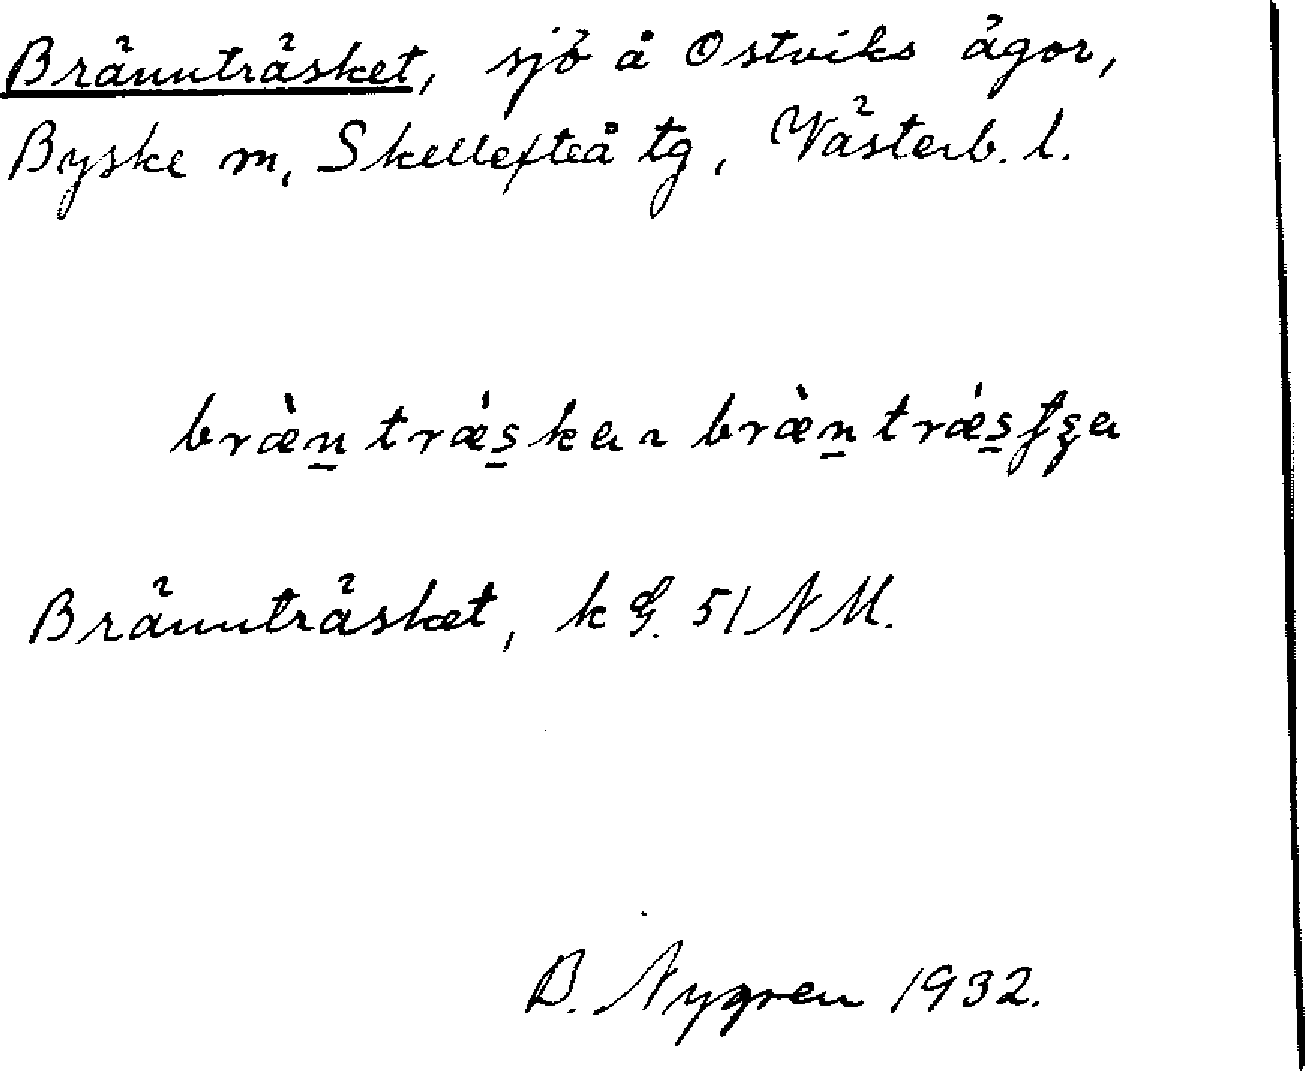 Brännträsket, sjö å Ostviks ägor,
Byske m, Skellefteå tg, Västerb. l.
bræ̀n̲trǽs̲ka ~ bræ̀n̲trǽs̲ʃʂa
Brännträsket, k G. 51 N M.
B. Nygren 1932.